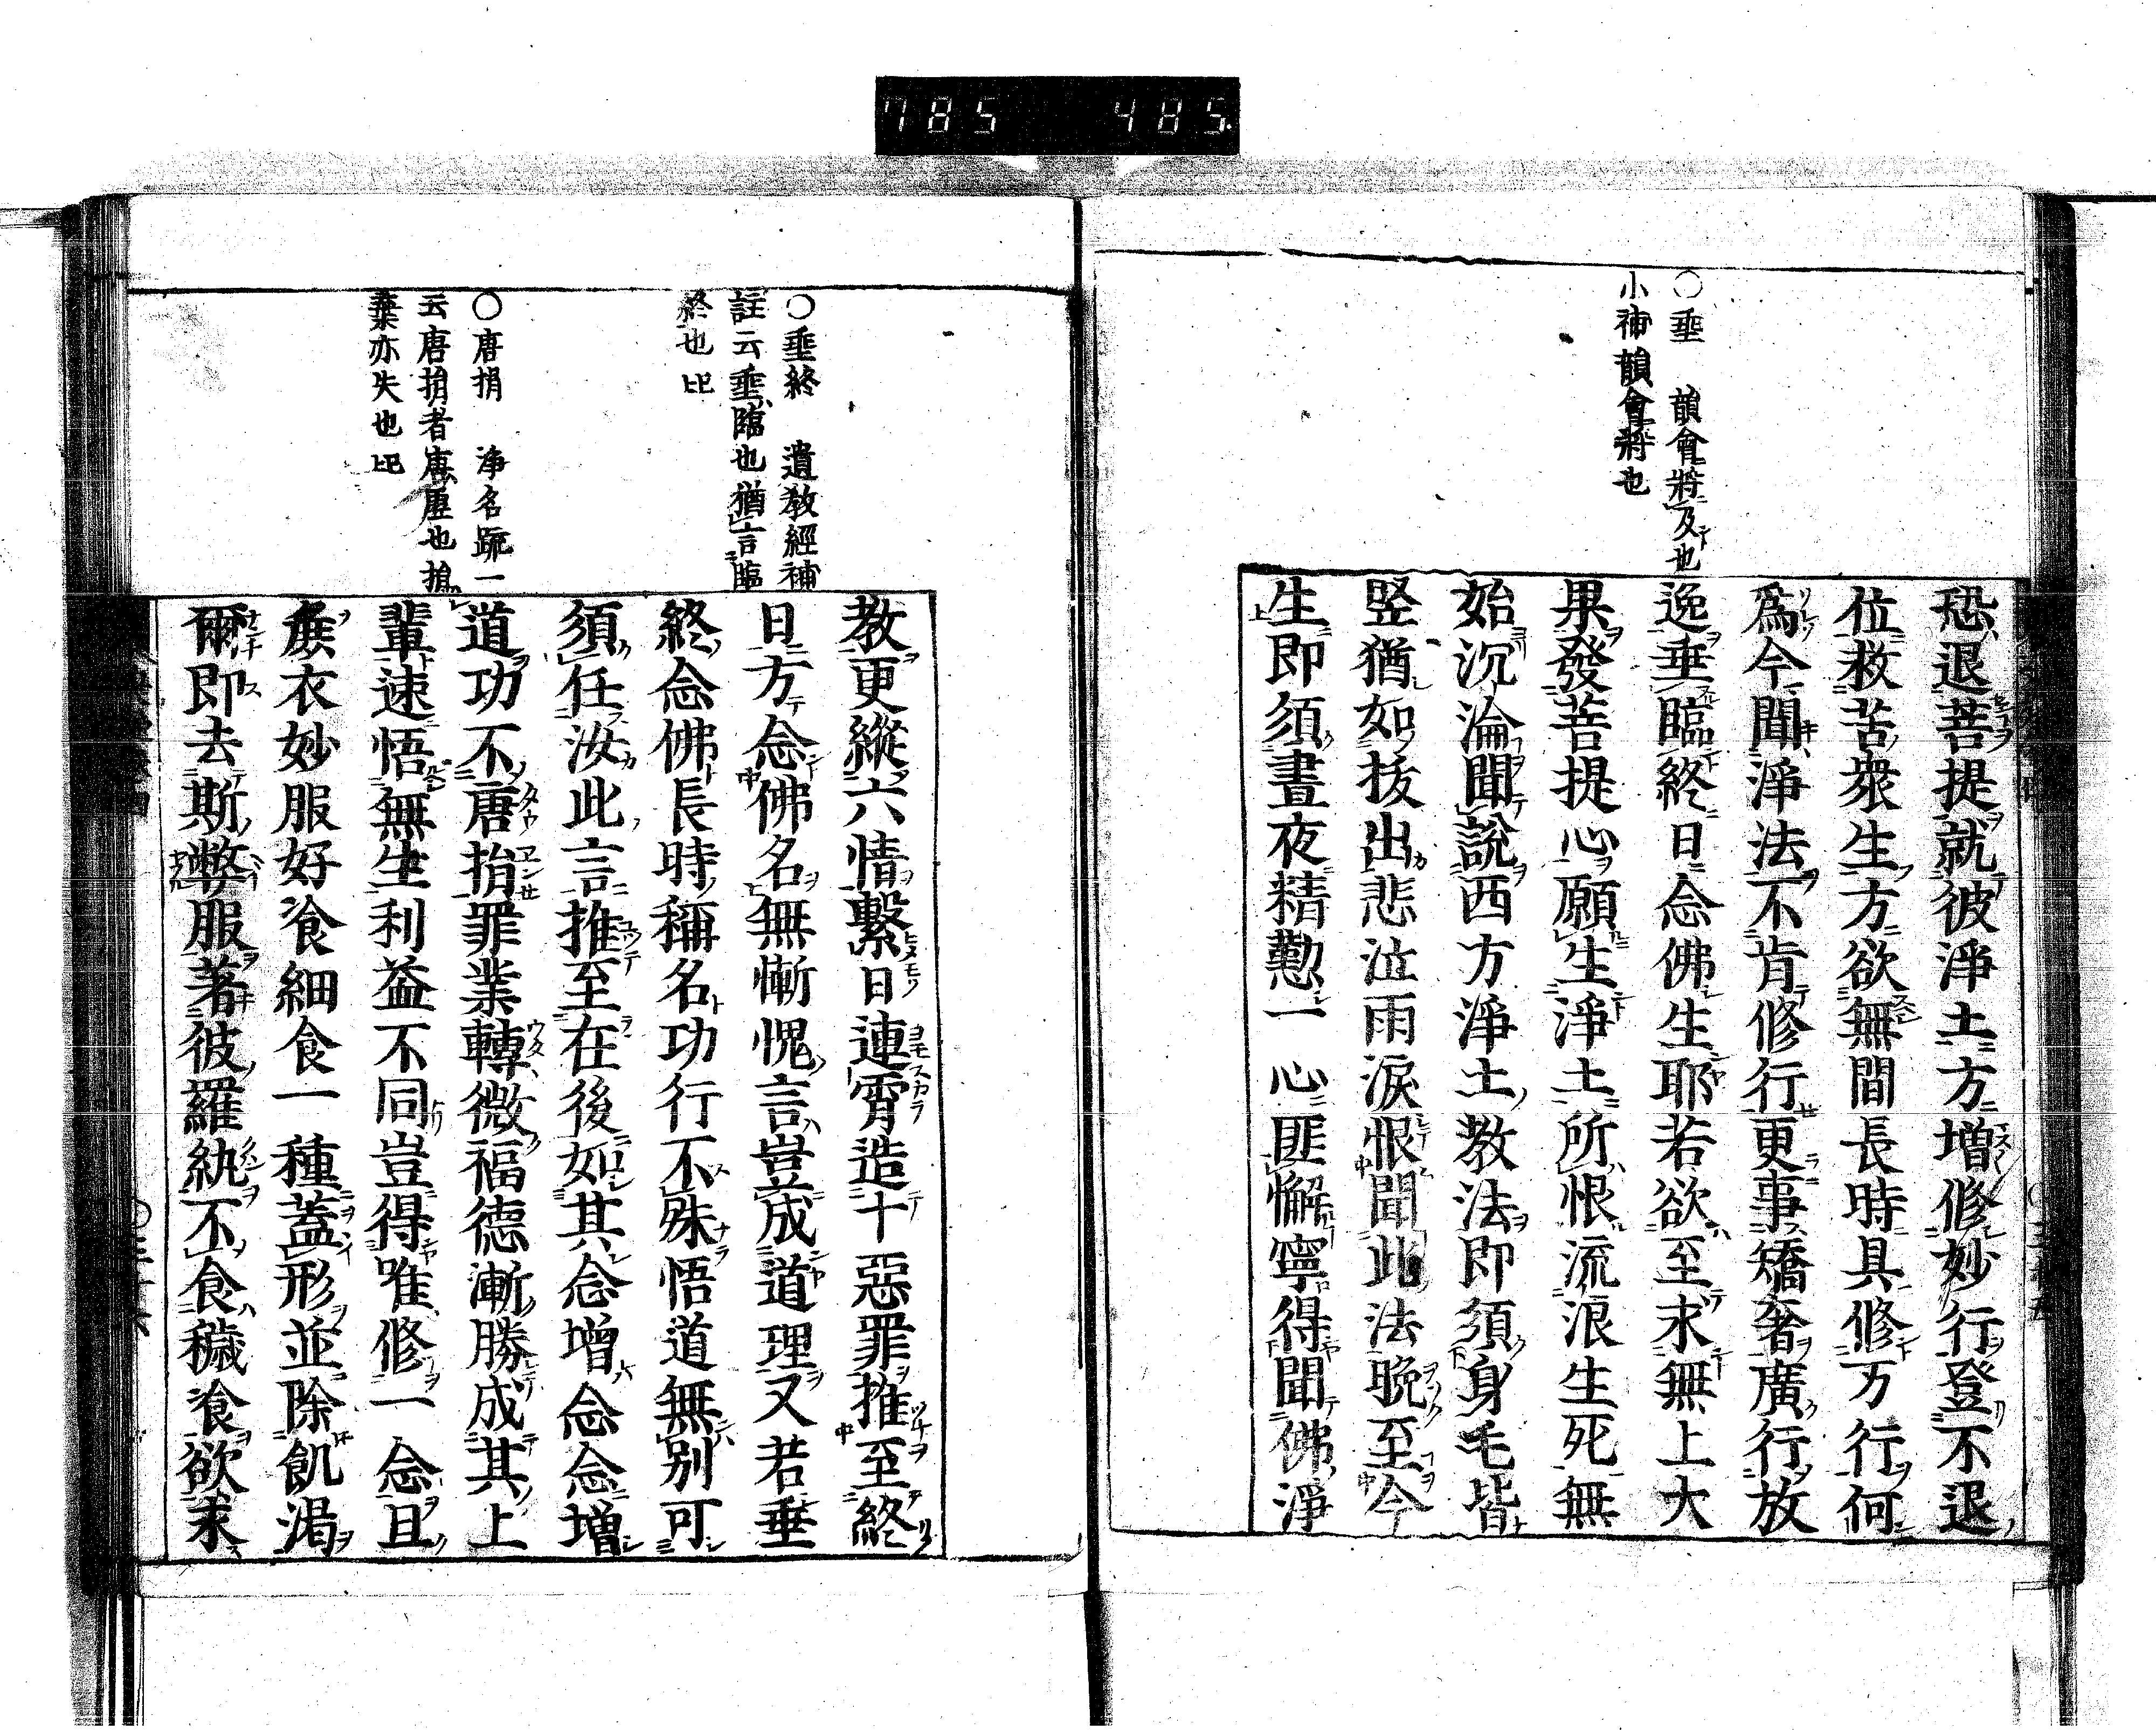 785 485
○垂 韻會將及也
小補韻會將也
恐退菩提就彼淨土方増修妙行登不退
位救苦衆生方欲無間長時具修万行何
爲今聞淨法不肯修行更事矯奢廣行放
逸垂臨終日念佛生耶若欲至求無上大
果發菩提心願生淨土所恨流浪生死無
始沉淪聞説西方淨土教法即須身毛皆
竪猶如拔出悲泣雨涙恨聞此法晩至今
生即須晝夜精勤一心匪懈寧得聞佛淨
○垂終 遺教經補
註云垂臨也猶言臨
終也
○唐捐 淨名疏一
云唐捐者唐虛也捐
棄亦失也
教更縱六情繫日連霄造十惡罪推至終
日方念佛名無慚愧言豈成道理又若垂
終念佛長時稱名功行不殊悟道無別可
須任汝此言推至在後如其念増念念増
道功不唐捐罪業轉微福德漸勝成其上
輩速悟無生利益不同豈得唯修一念且
麁衣妙服好飡細食一種蓋形並除飢渴
爾即去斯弊服著彼羅紈不食穢飡欲求